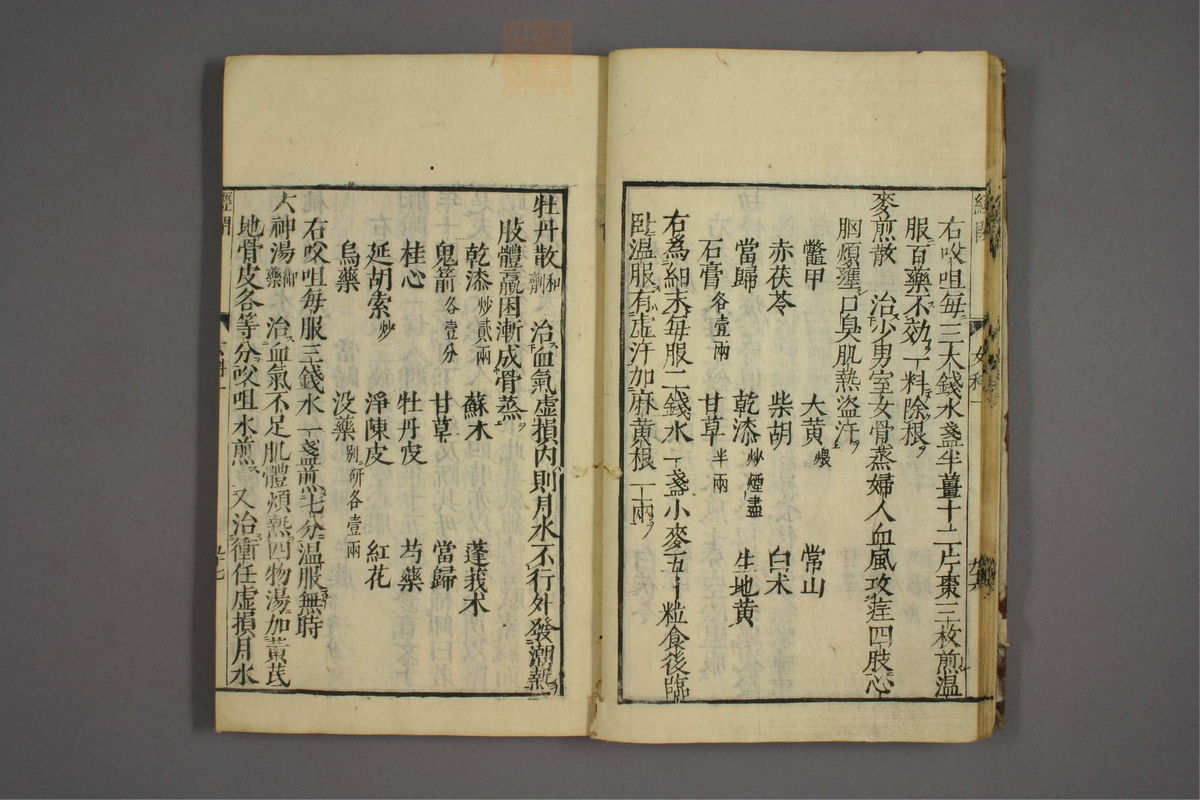 右㕮咀每三大錢水盞半薑十二片棗三枚煎溫
服百藥不効一料除根
麥煎散 治少男室女骨蒸婦人血風攻疰四肢心
胸煩壅口臭肌熱盜汗
鱉甲 大黃煨 常山
赤茯苓 柴胡 白术
當歸 乾漆炒煙盡 生地黃
石膏各壹兩 甘草半兩
右為細末每服二錢水一盞小麥五十粒食後臨
臥溫服有虛汗加麻黃根一兩
牡丹散和劑 治血氣虛損內則月水不行外發潮熱
肢體羸困漸成骨蒸
乾漆炒貳兩 蘇木 蓬莪术
鬼箭各壹分 甘草 當歸
桂心 牡丹皮 芍藥
延胡索炒 淨陳皮 紅花
烏藥 没藥別研各壹兩
右㕮咀每服三錢水一盞煎七分溫服無時
六神湯御藥 治血氣不足肌體煩熱四物湯加黃芪
地骨皮各等分㕮咀水煎 又治衝任虛損月水